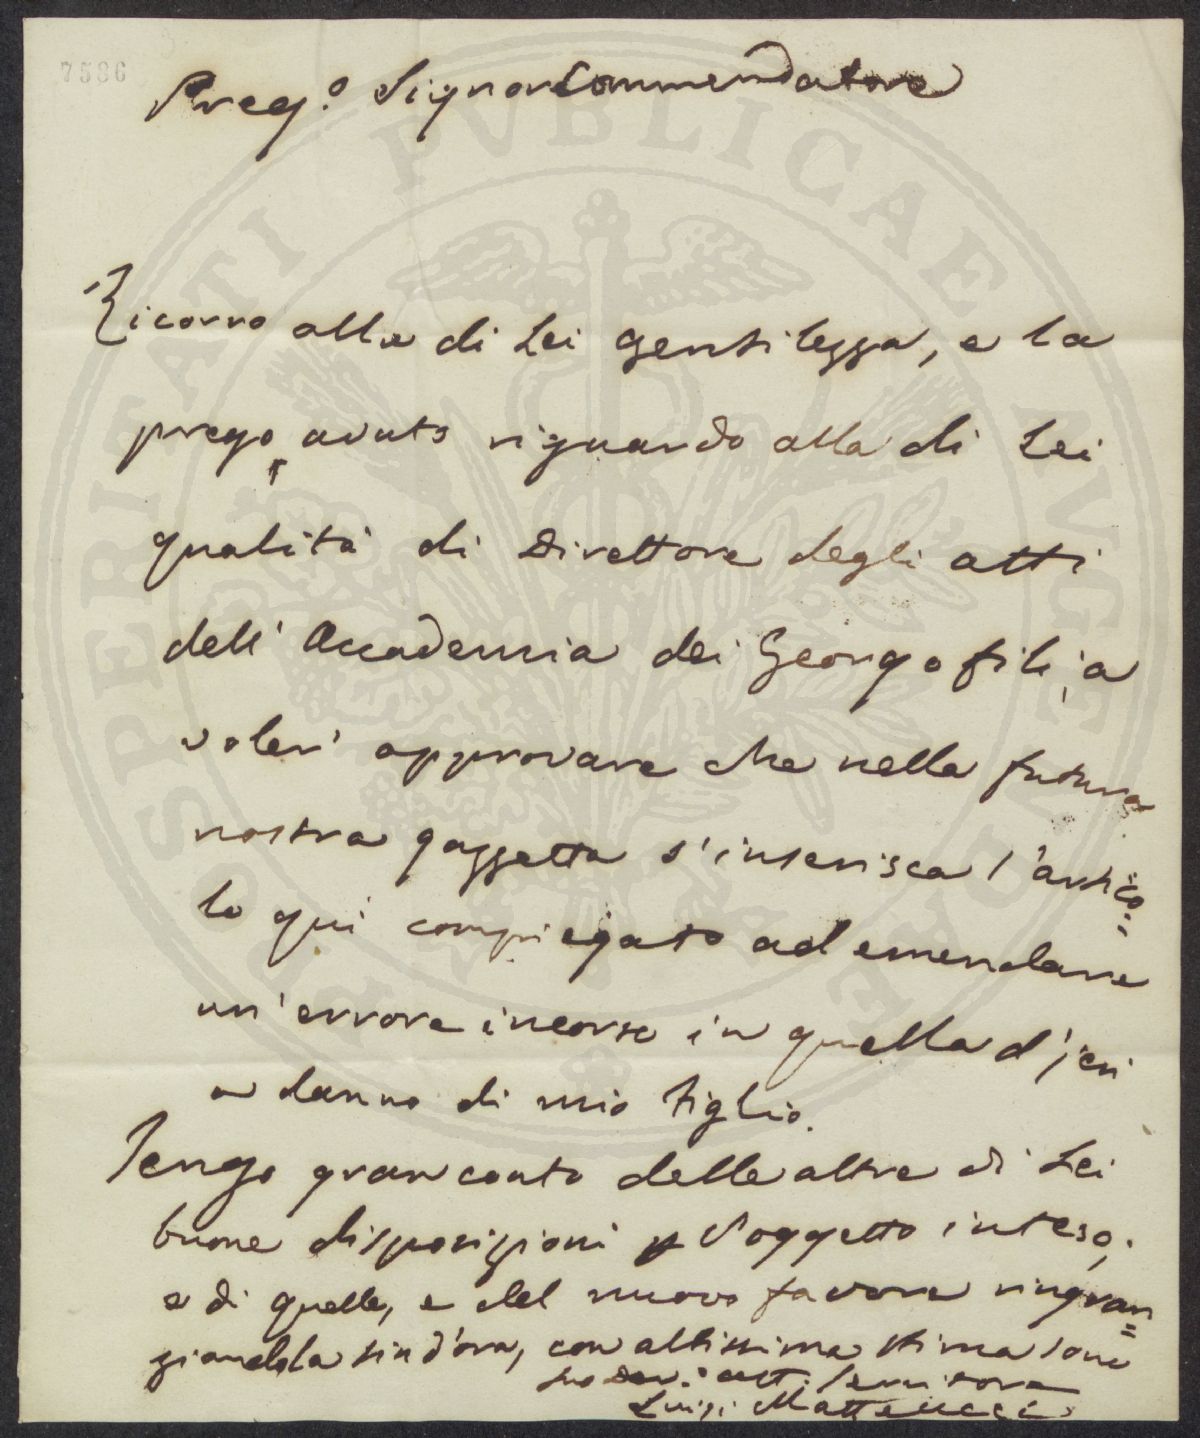 7586
Preg.º Signor Commendatore
Ricorro alla di Lei gentilezza, e la
prego, avuto riguardo alla di Lei
qualità di Direttore degli atti
dell' Accademia dei Georgofili, a
voler' approvare che nella futura
nostra gazzetta s'inserisca l'artico=
lo qui compiegato ad emendare
un'errore incorso in quella d'jeri
a danno di mio figlio.
Tengo gran conto delle altre di Lei
buone disposizioni p l'oggetto inteso;
e di quelle, e del nuovo favore ringran=
ziandola sin d'ora, con altissima stima sono
Suo Dev.º Servitore
Luigi Matteucci
PROSPERITATI PVBLICAE AVGENDAE